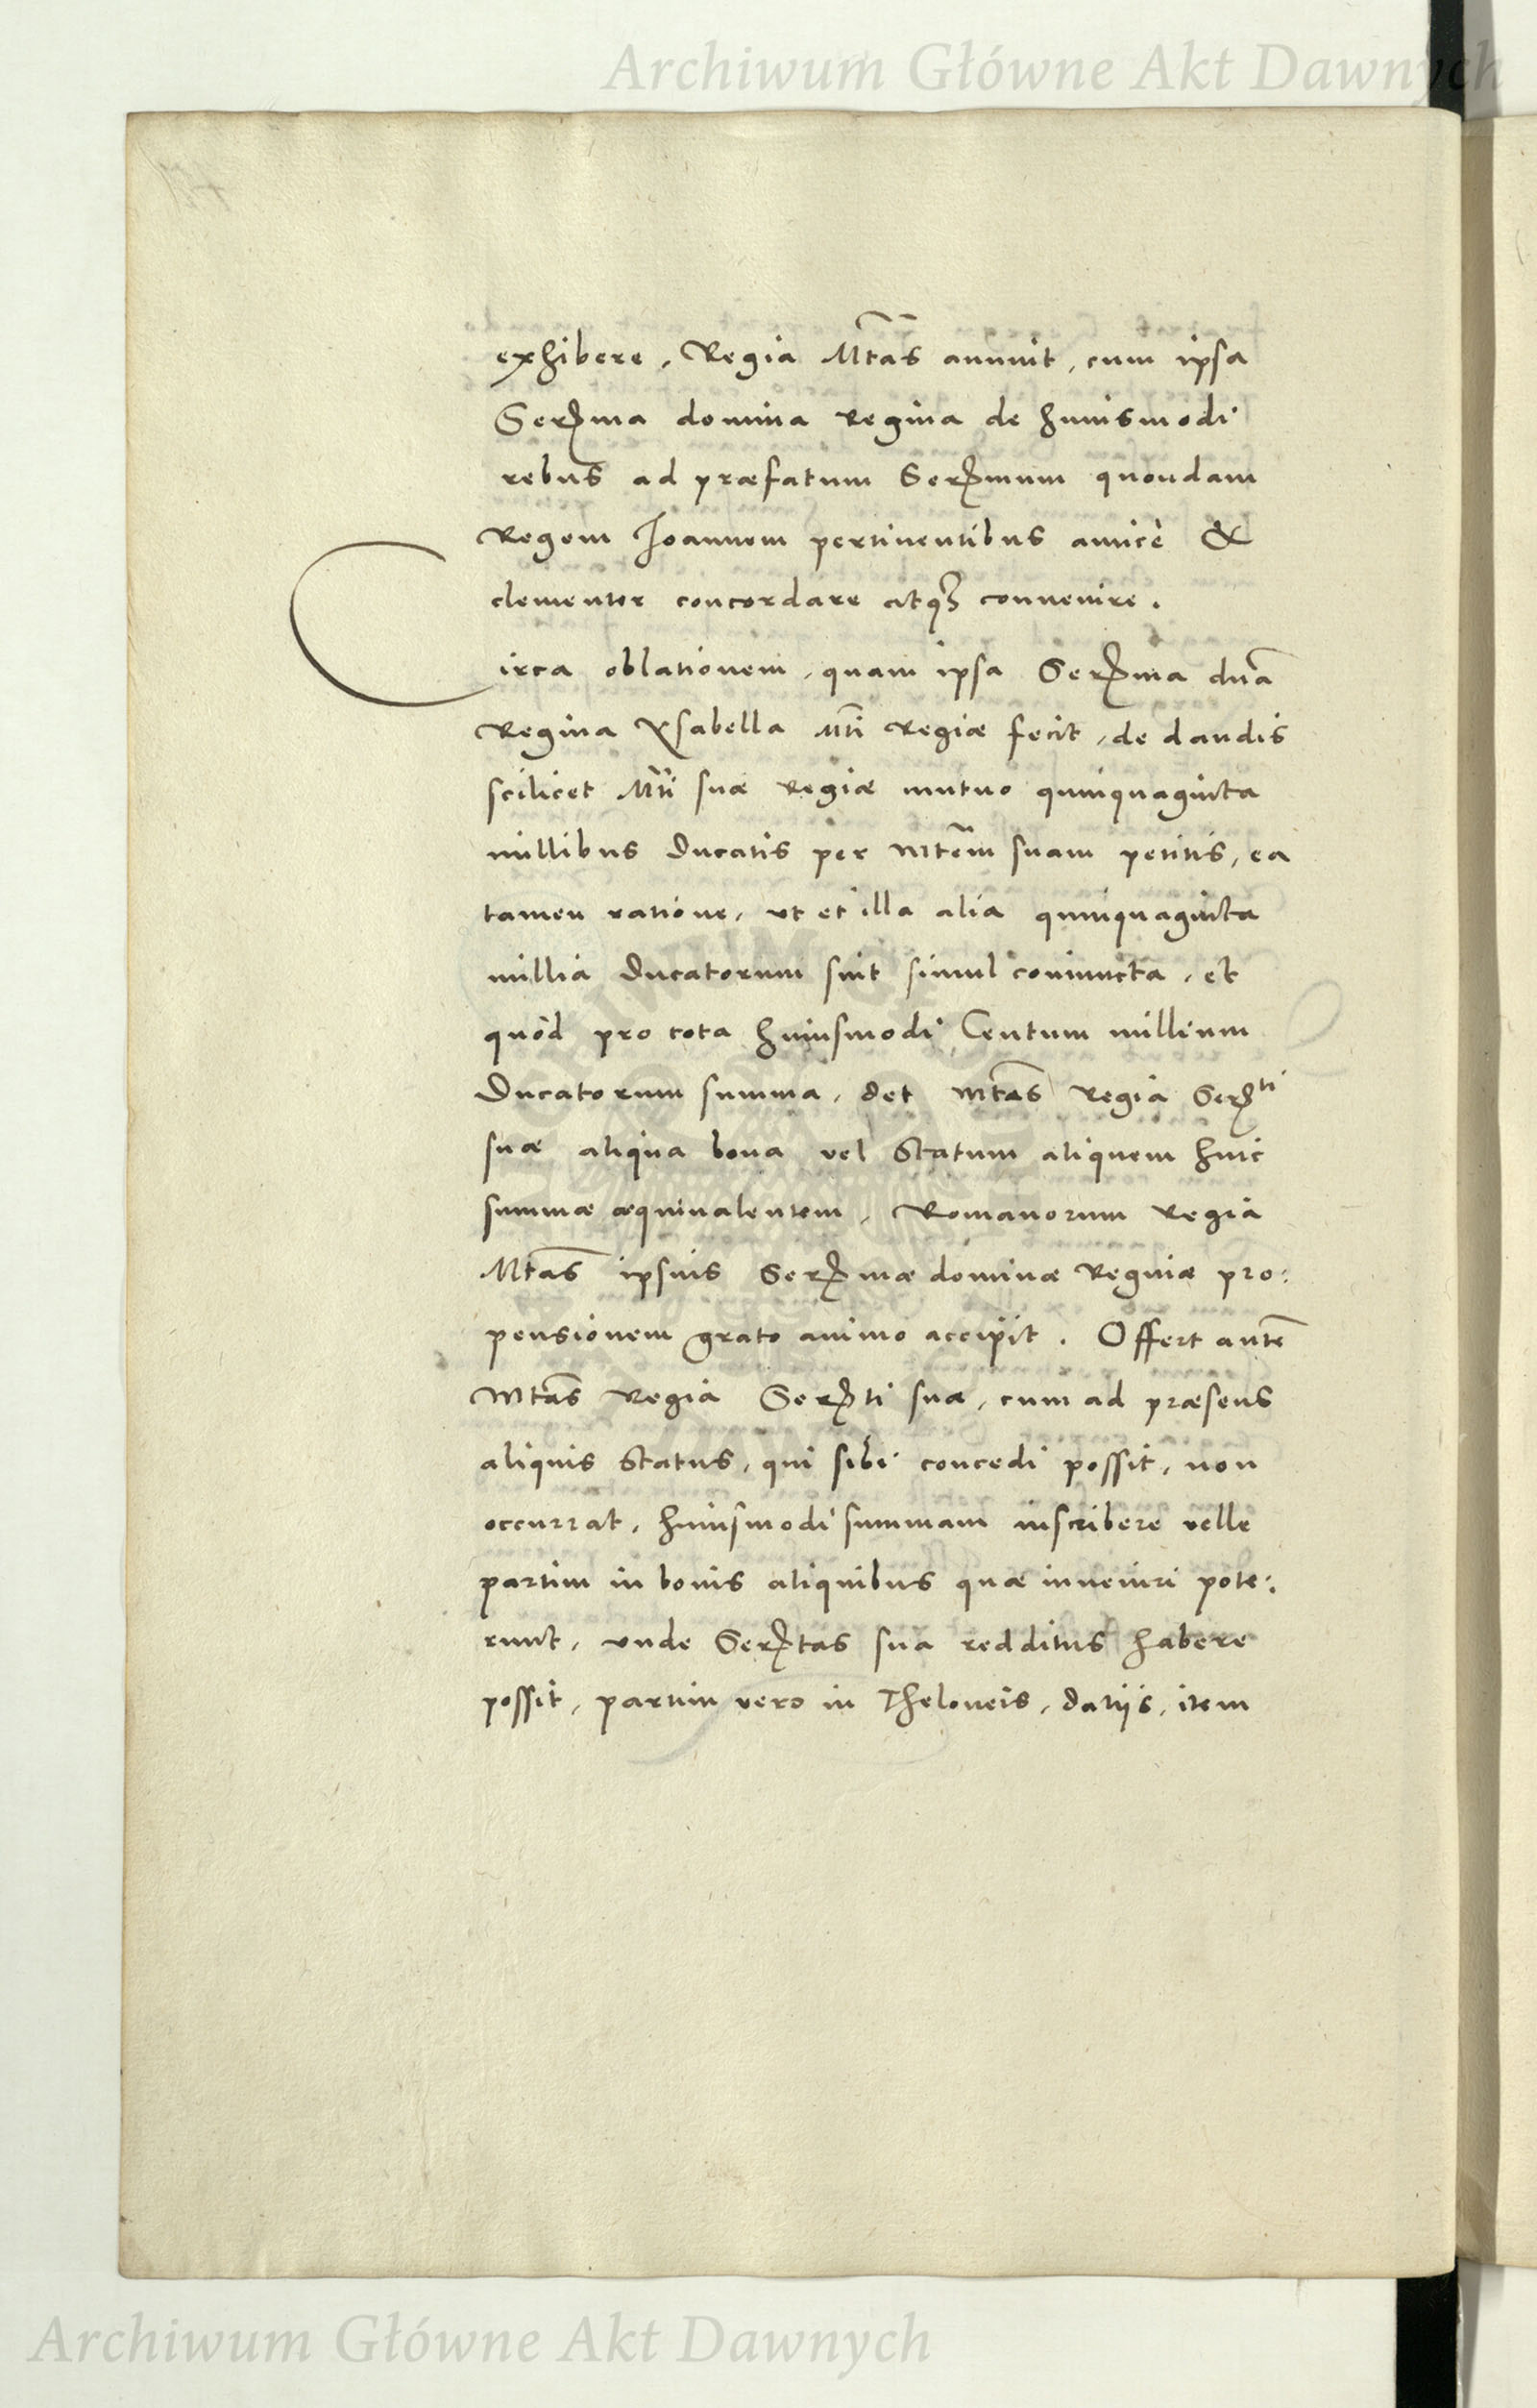 Archiwum Główne Akt Dawnych
exhibere, Regia Mtas annuit, cum ipsa
Serma domina Regina de huiusmodi
rebus ad præfatum Sermum quondam
Regem Joannem pertinentibus amicè &
clementer concordare atq3 conuenire.
Circa oblationem, quam ipsa Serma dna
Regina Ysabella Mti Regiæ fecit, de dandis
scilicet Mti suæ Regiæ mutuo quinquaginta
millibus Ducatis per Mtem suam petitis, ea
tamen ratione, vt et illa alia quinquaginta
millia Ducatorum sint simul coniuncta, et
quòd pro tota huiusmodi Centum millium
Ducatorum summa, det Mtas Regia Serti
suæ aliqua bona vel Statum aliquem huic
summæ æquiualentem, Romanorum Regia
Mtas ipsius Sermæ dominæ Reginæ pro:
pensionem grato animo accipit. Offert aute
Mtas Regia Serti suæ, cum ad præsens
aliquis Status, qui sibi concedi possit, non
occurrat, huiusmodi summam inscribere velle
partim in bonis aliquibus quæ inueniri pote:
runt, vnde Sertas sua redditus habere
possit, partim vero in Theloneis, datijs, item
Archiwum Główne Akt Dawnych